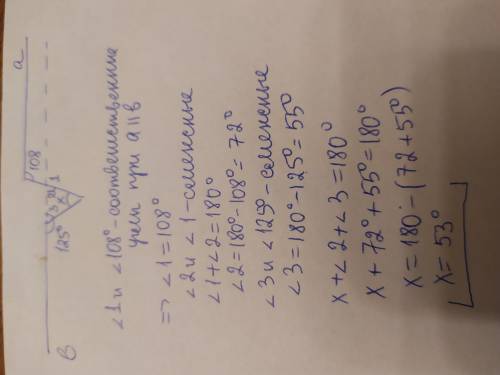 a
108
3 2 1
x
125°
в
∠1 и ∠108° - соответственные
углы при a || в
=> ∠1 = 108°
∠2 и ∠1 - смежные
∠1 + ∠2 = 180°
∠2 = 180° - 108° = 72°
∠3 и ∠125° - смежные
∠3 = 180° - 125° = 55°
x + ∠2 + ∠3 = 180°
x + 72° + 55° = 180°
x = 180° - (72 + 55°)
x = 53°